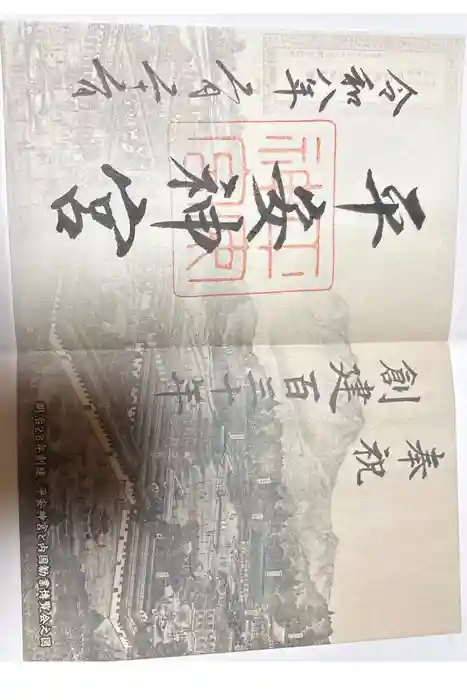 奉祝
創建百三十年
平安神宮
令和八年
明治28年創建 平安神宮と内国勧業博覧会之図